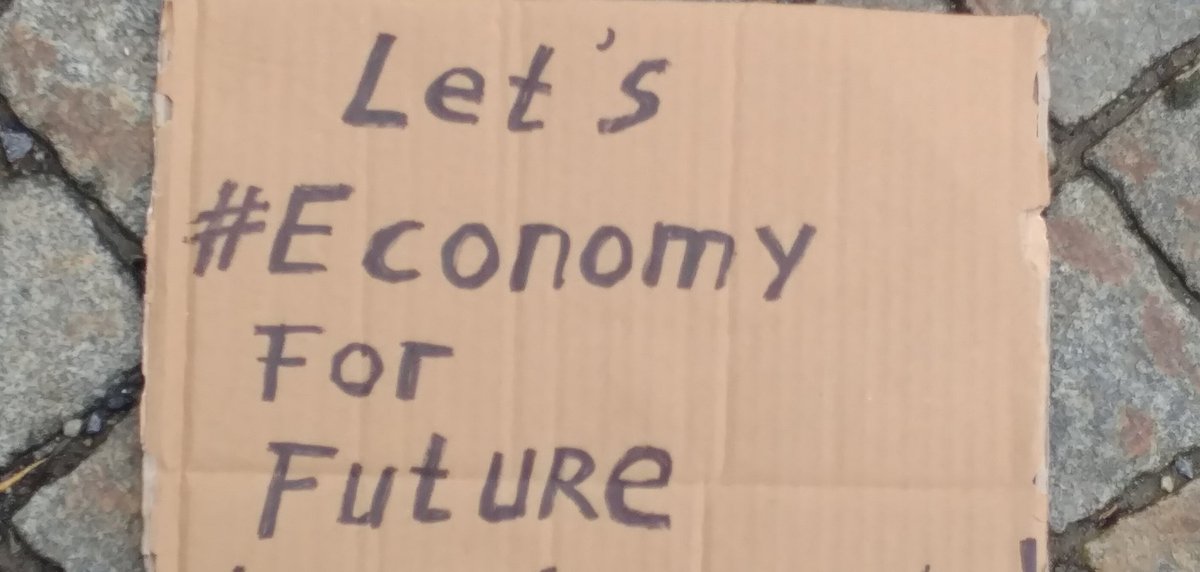 Let's
#Economy
For
Future